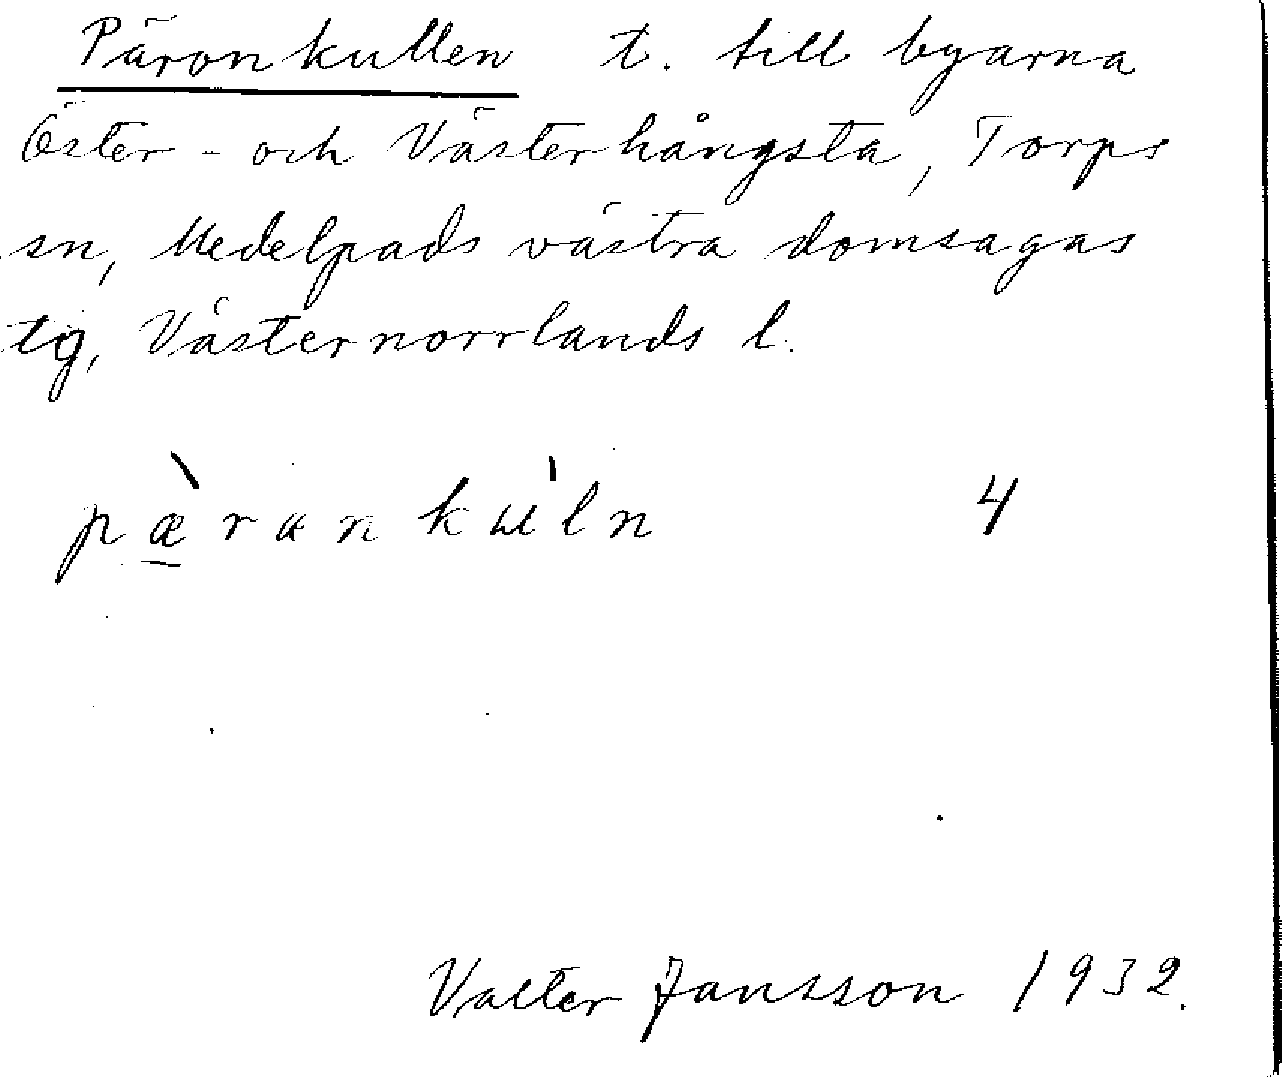 Päronkullen t. till byarna
Öster- och Västerhångsta, Torps
sn, Medelpads västra domsagas
tg, Västernorrlands l.
pæ̠̀rankɯ̍ln 4
Valter Jansson 1932.